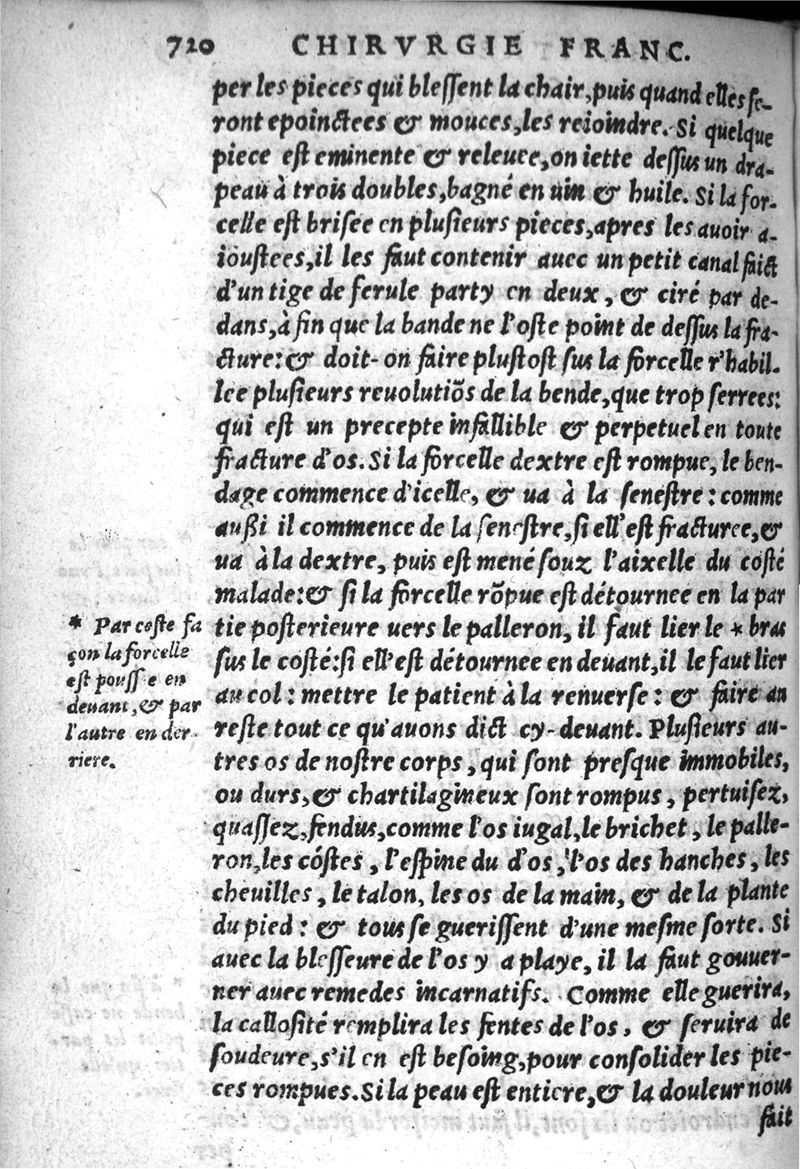 720 CHIRVRGIE FRANC.
per les pieces qui blessent la chair, puis quand elles se-
ront epoinctees & mouces, les reioindre. Si quelque
piece est eminente & releuee, on iette dessus un dra-
peau à trois doubles, bagné en uin & huile. Si la for-
celle est brisee en plusieurs pieces, apres les auoir a-
ioustees, il les faut contenir auec un petit canal faict
d'un tige de ferule party en deux, & ciré par de-
dans, à fin que la bande ne l'oste point de dessus la fra-
cture: & doit-on faire plustost sus la forcelle r'habil-
lee plusieurs reuolutiõs de la bende, que trop serrees:
qui est un precepte infallible & perpetuel en toute
fracture d'os. Si la forcelle dextre est rompue, le ben-
dage commence d'icelle, & ua à la senestre: comme
außi il commence de la senestre, si ell'est fracturee, &
ua à la dextre, puis est mené souz l'aixelle du costé
malade: & si la forcelle rõpue est détournee en la par
tie posterieure uers le palleron, il faut lier le * bras
sus le costé: si ell'est détournee en deuant, il le faut lier
au col: mettre le patient à la renuerse: & faire au
reste tout ce qu'auons dict cy-deuant. Plusieurs au-
tres os de nostre corps, qui sont presque immobiles,
ou durs, & chartilagineux sont rompus, pertuisez,
quassez, fendus, comme l'os iugal, le brichet, le palle-
ron, les cóstes, l'espine du d'os, l'os des hanches, les
cheuilles, le talon, les os de la main, & de la plante
du pied: & tous se guerissent d'une mesme sorte. Si
auec la blesseure de l'os y a playe, il la faut gouuer-
ner auec remedes incarnatifs. Comme elle guerira,
la callosité remplira les fentes de l'os, & seruira de
soudeure, s'il en est besoing, pour consolider les pie-
ces rompues. Si la peau est entiere, & la douleur nous
fait
* Par ceste fa
çon la forcelle
est poussee en
deuant, & par
l'autre en der-
riere.